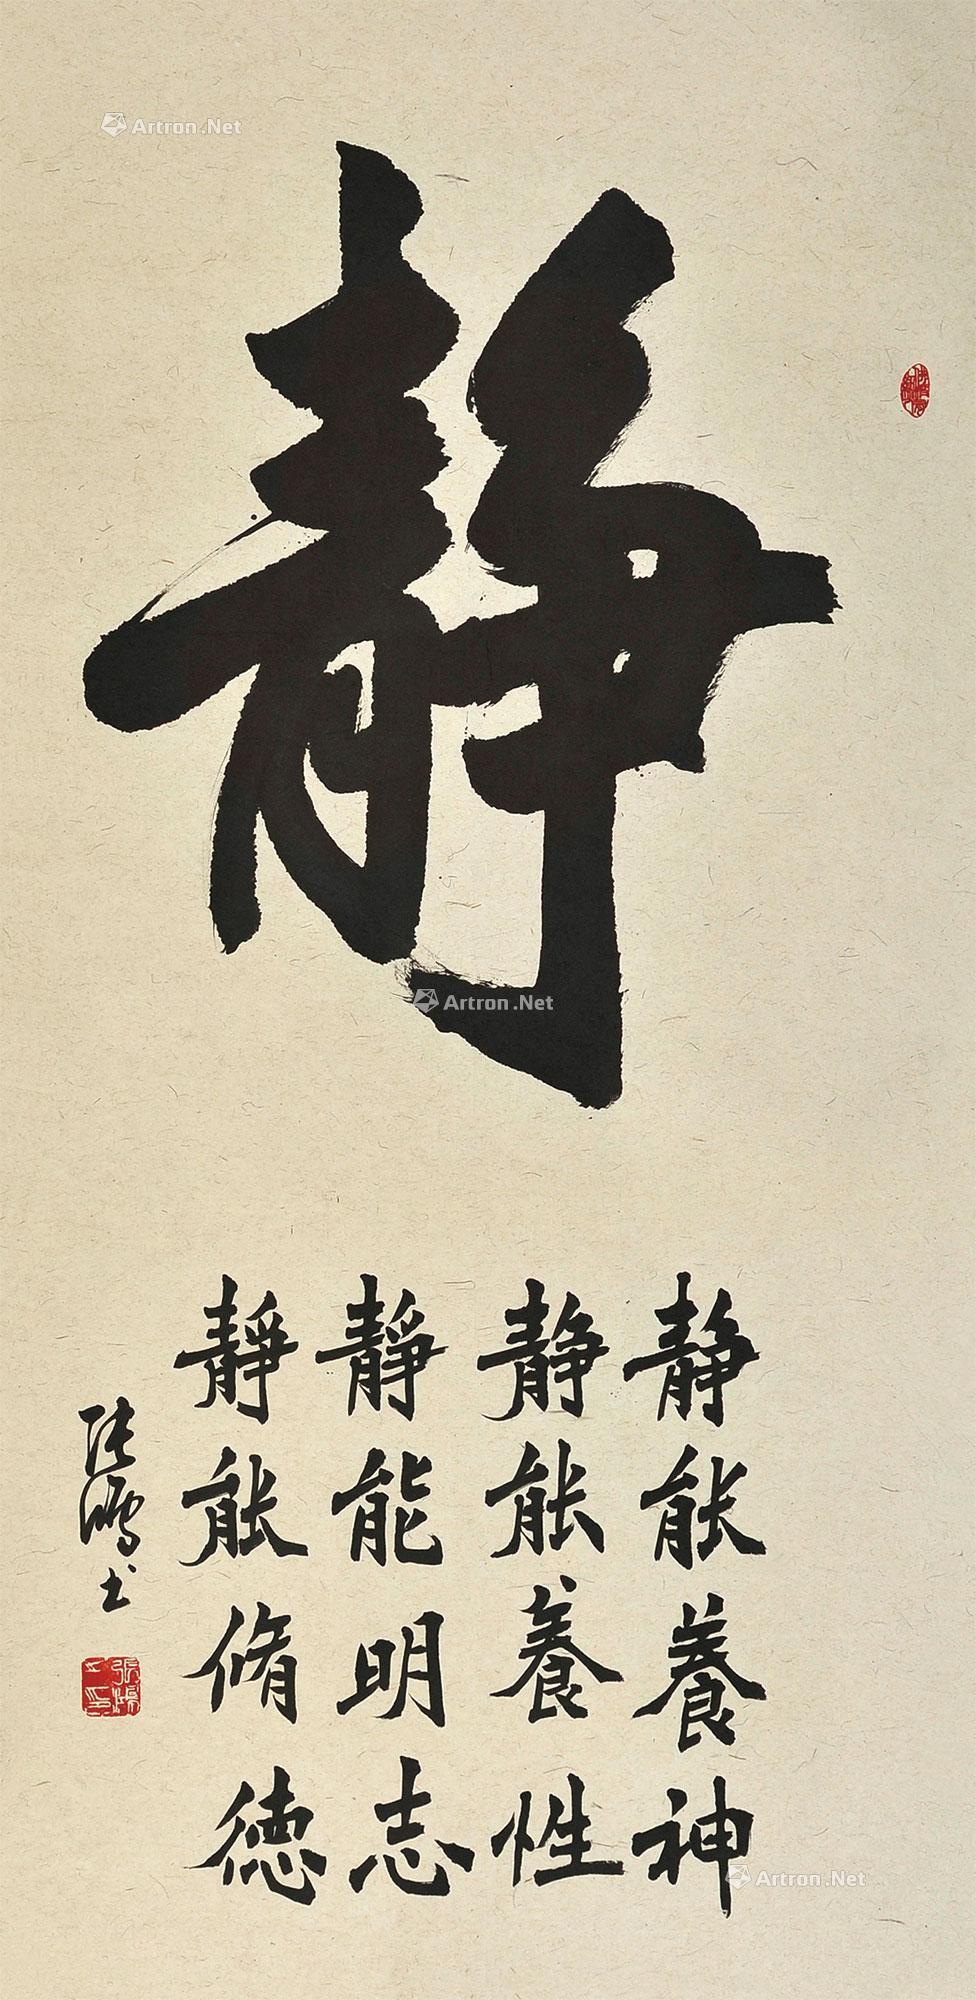 Artron.Net
静
静能養神
静能養性
靜能明志
靜能脩德
張鴻书
Artron.Net
Artron.Net